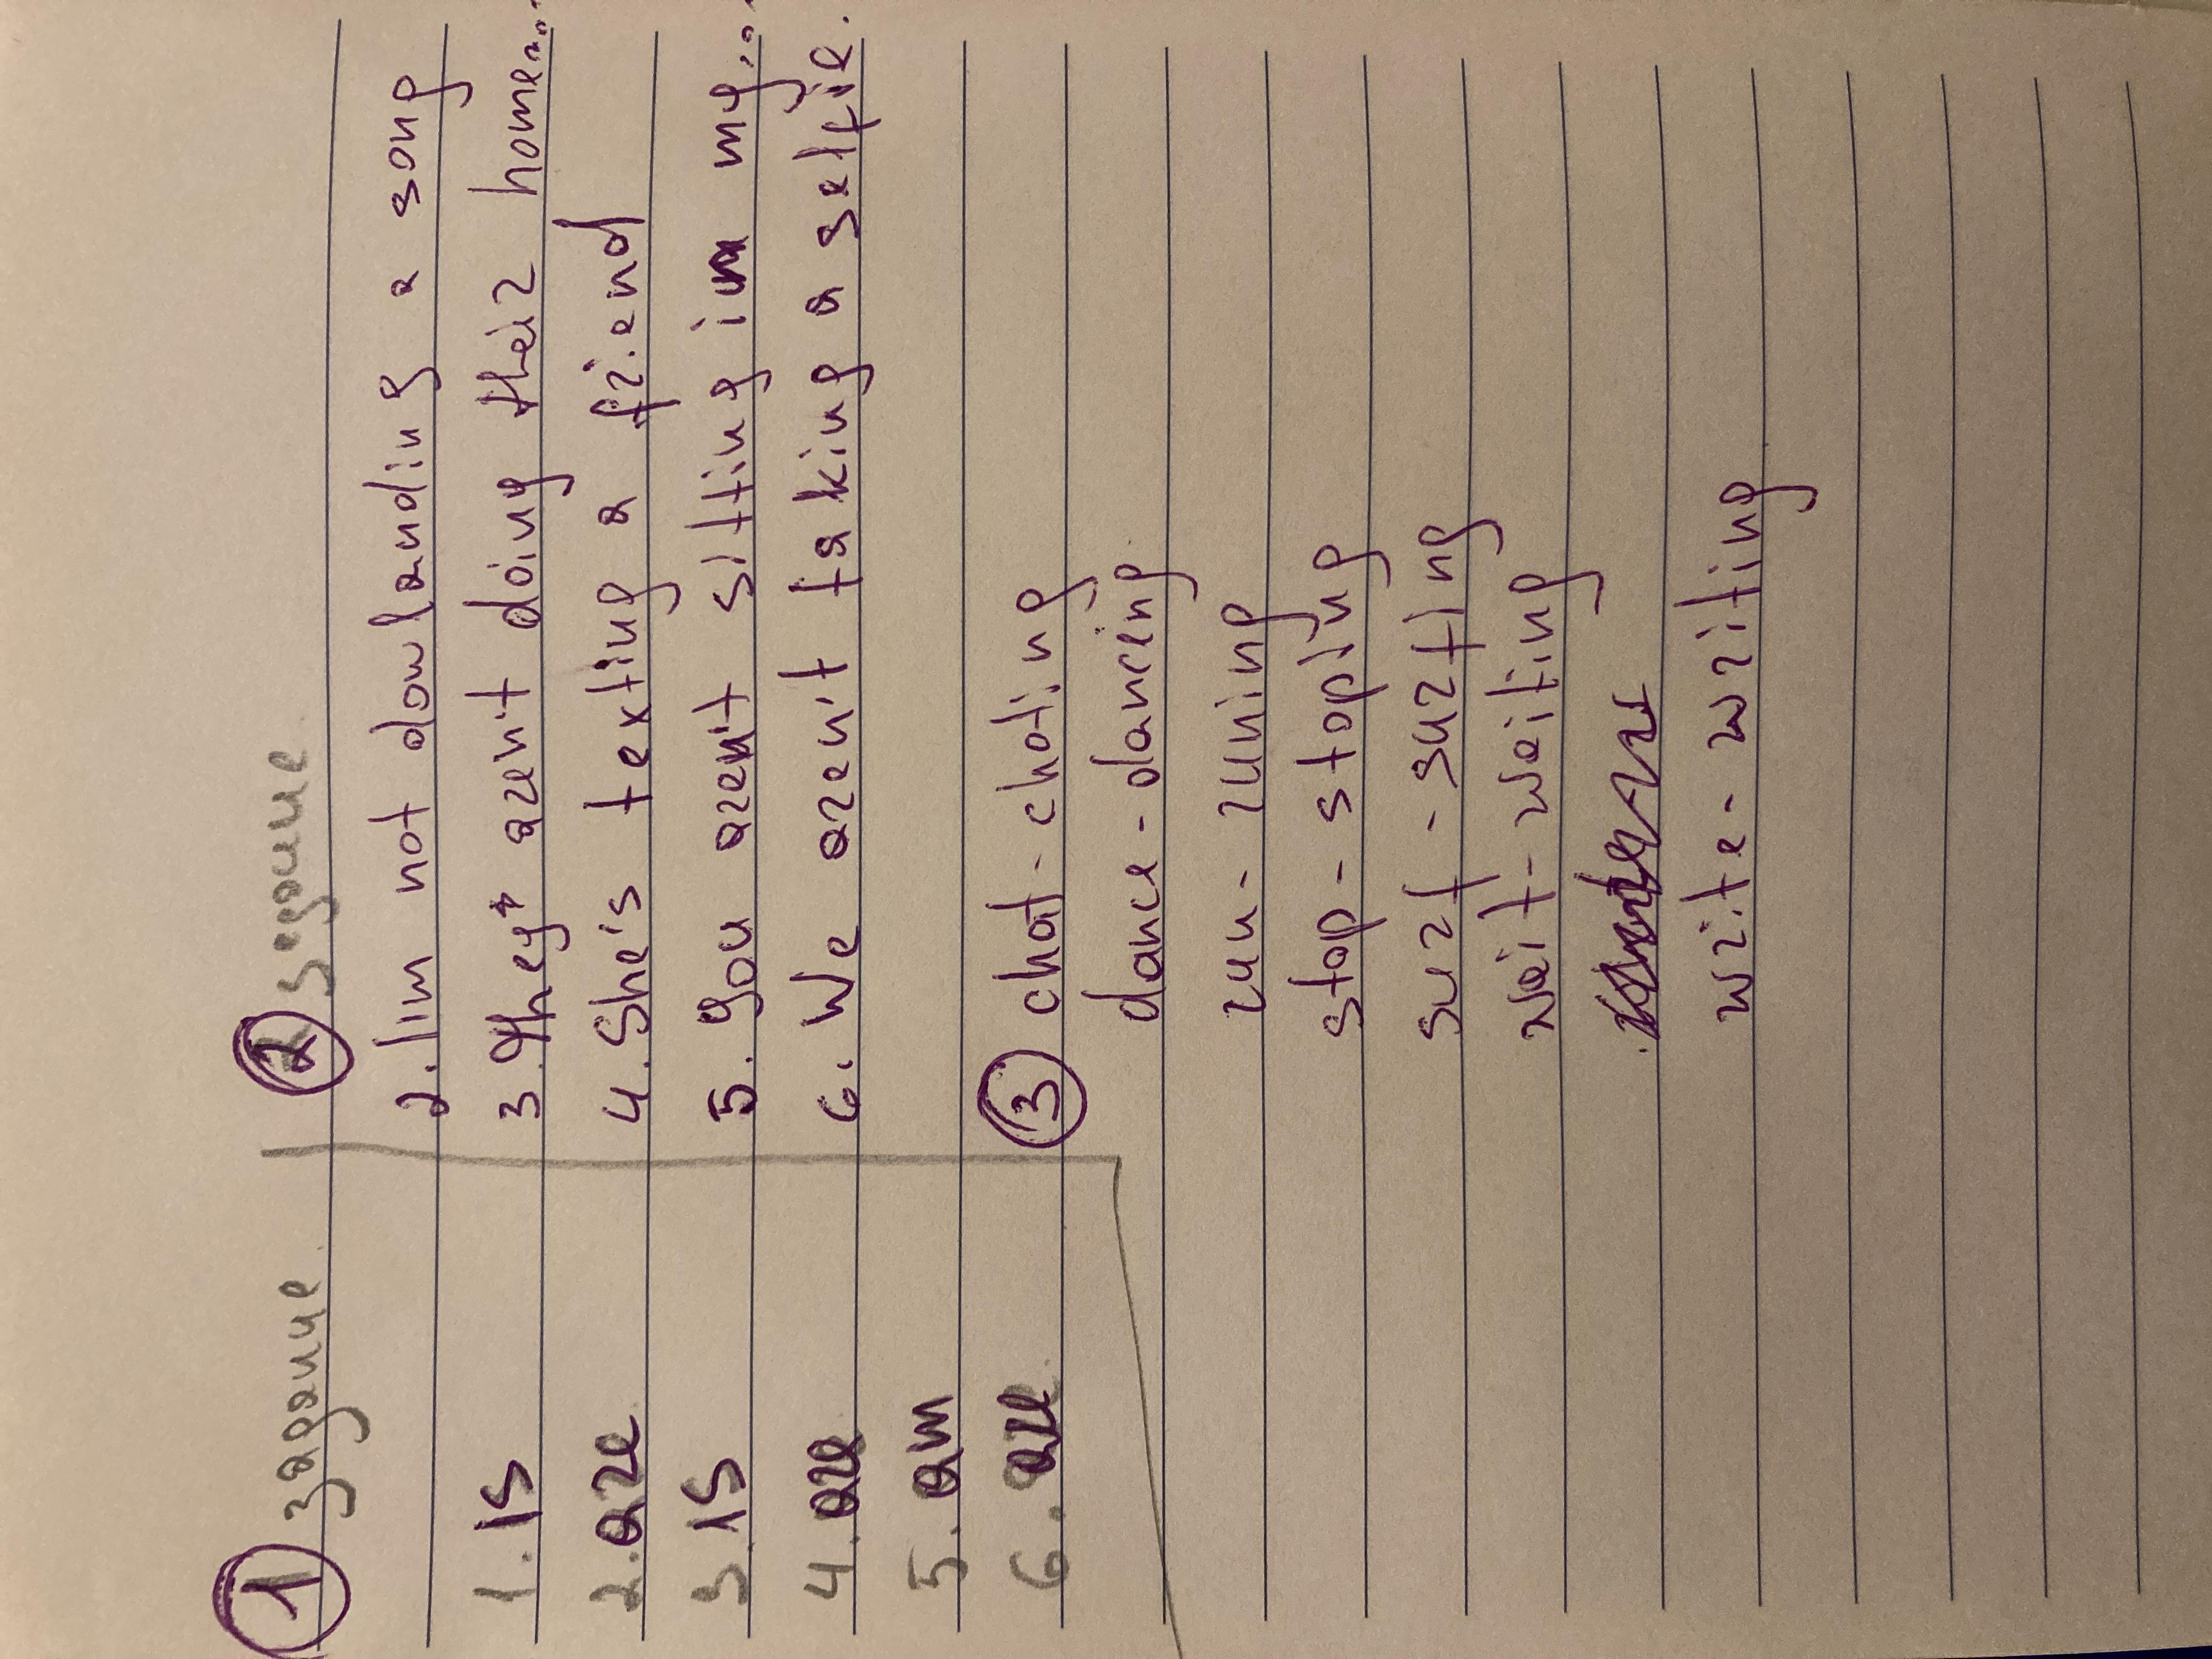 1 задание
1. is
2. are
3. is
4. are
5. am
6. are
2 задание
2. I'm not dowlanding a song
3. They aren't doing their home...
4. She's texting a friend
5. You aren't sitting in my...
6. We aren't taking a selfie.
3 chat - chating
dance - dancing
run - runing
stop - stoping
surf - surfing
wait - waiting
write - writing